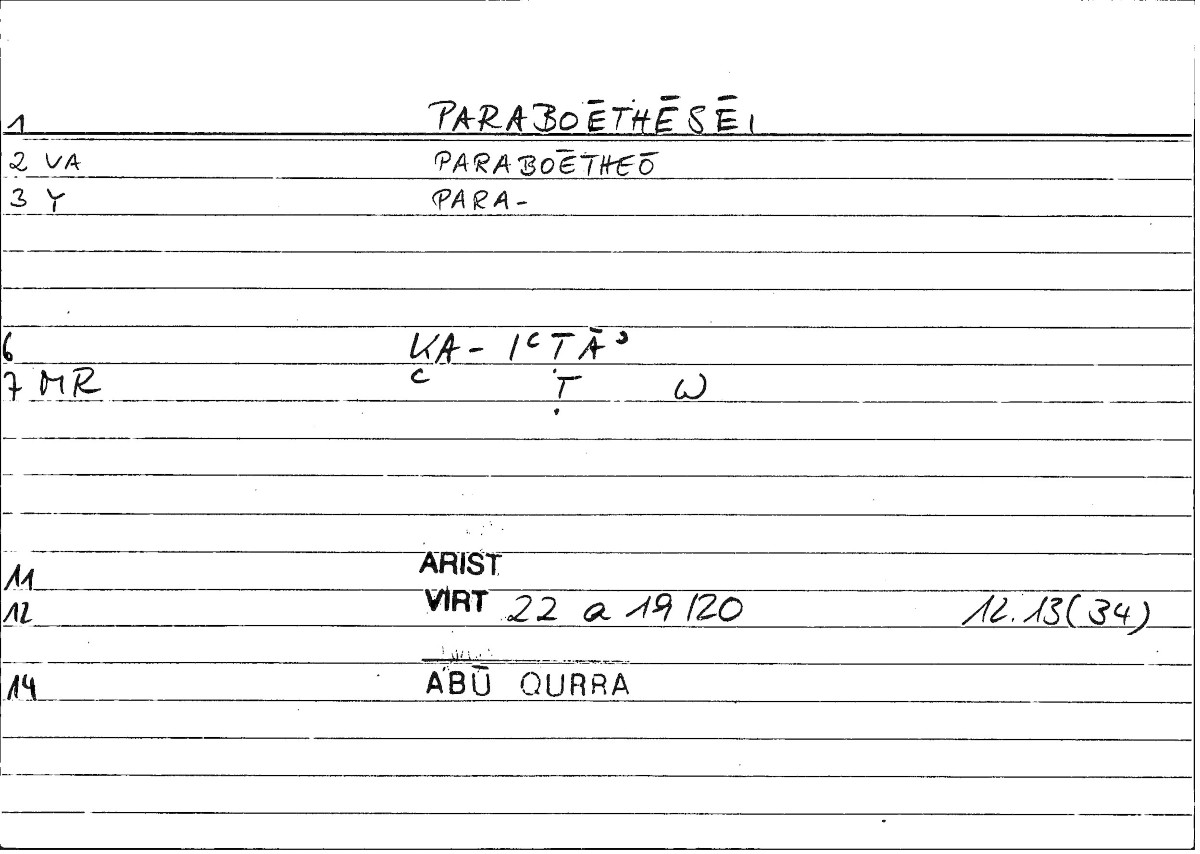 1 PARABOĒTHĒSĒI
2 VA PARABOĒTHEŌ
3 Y PARA-
6 KA- IʿṬĀʾ
7 MR ʿ Ṭ W
11 ARIST
12 VIRT 22 a 19/20 12.13(34)
14 ABŪ QURRA